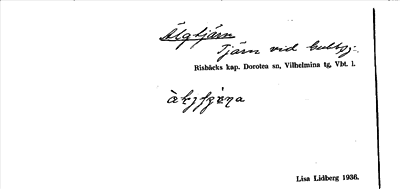 Älgtjärn
Tjärn vid
Risbäcks kap. Dorotea sn, Vilhelmina tg, Vbt. l.
Lisa Lidberg 1936.